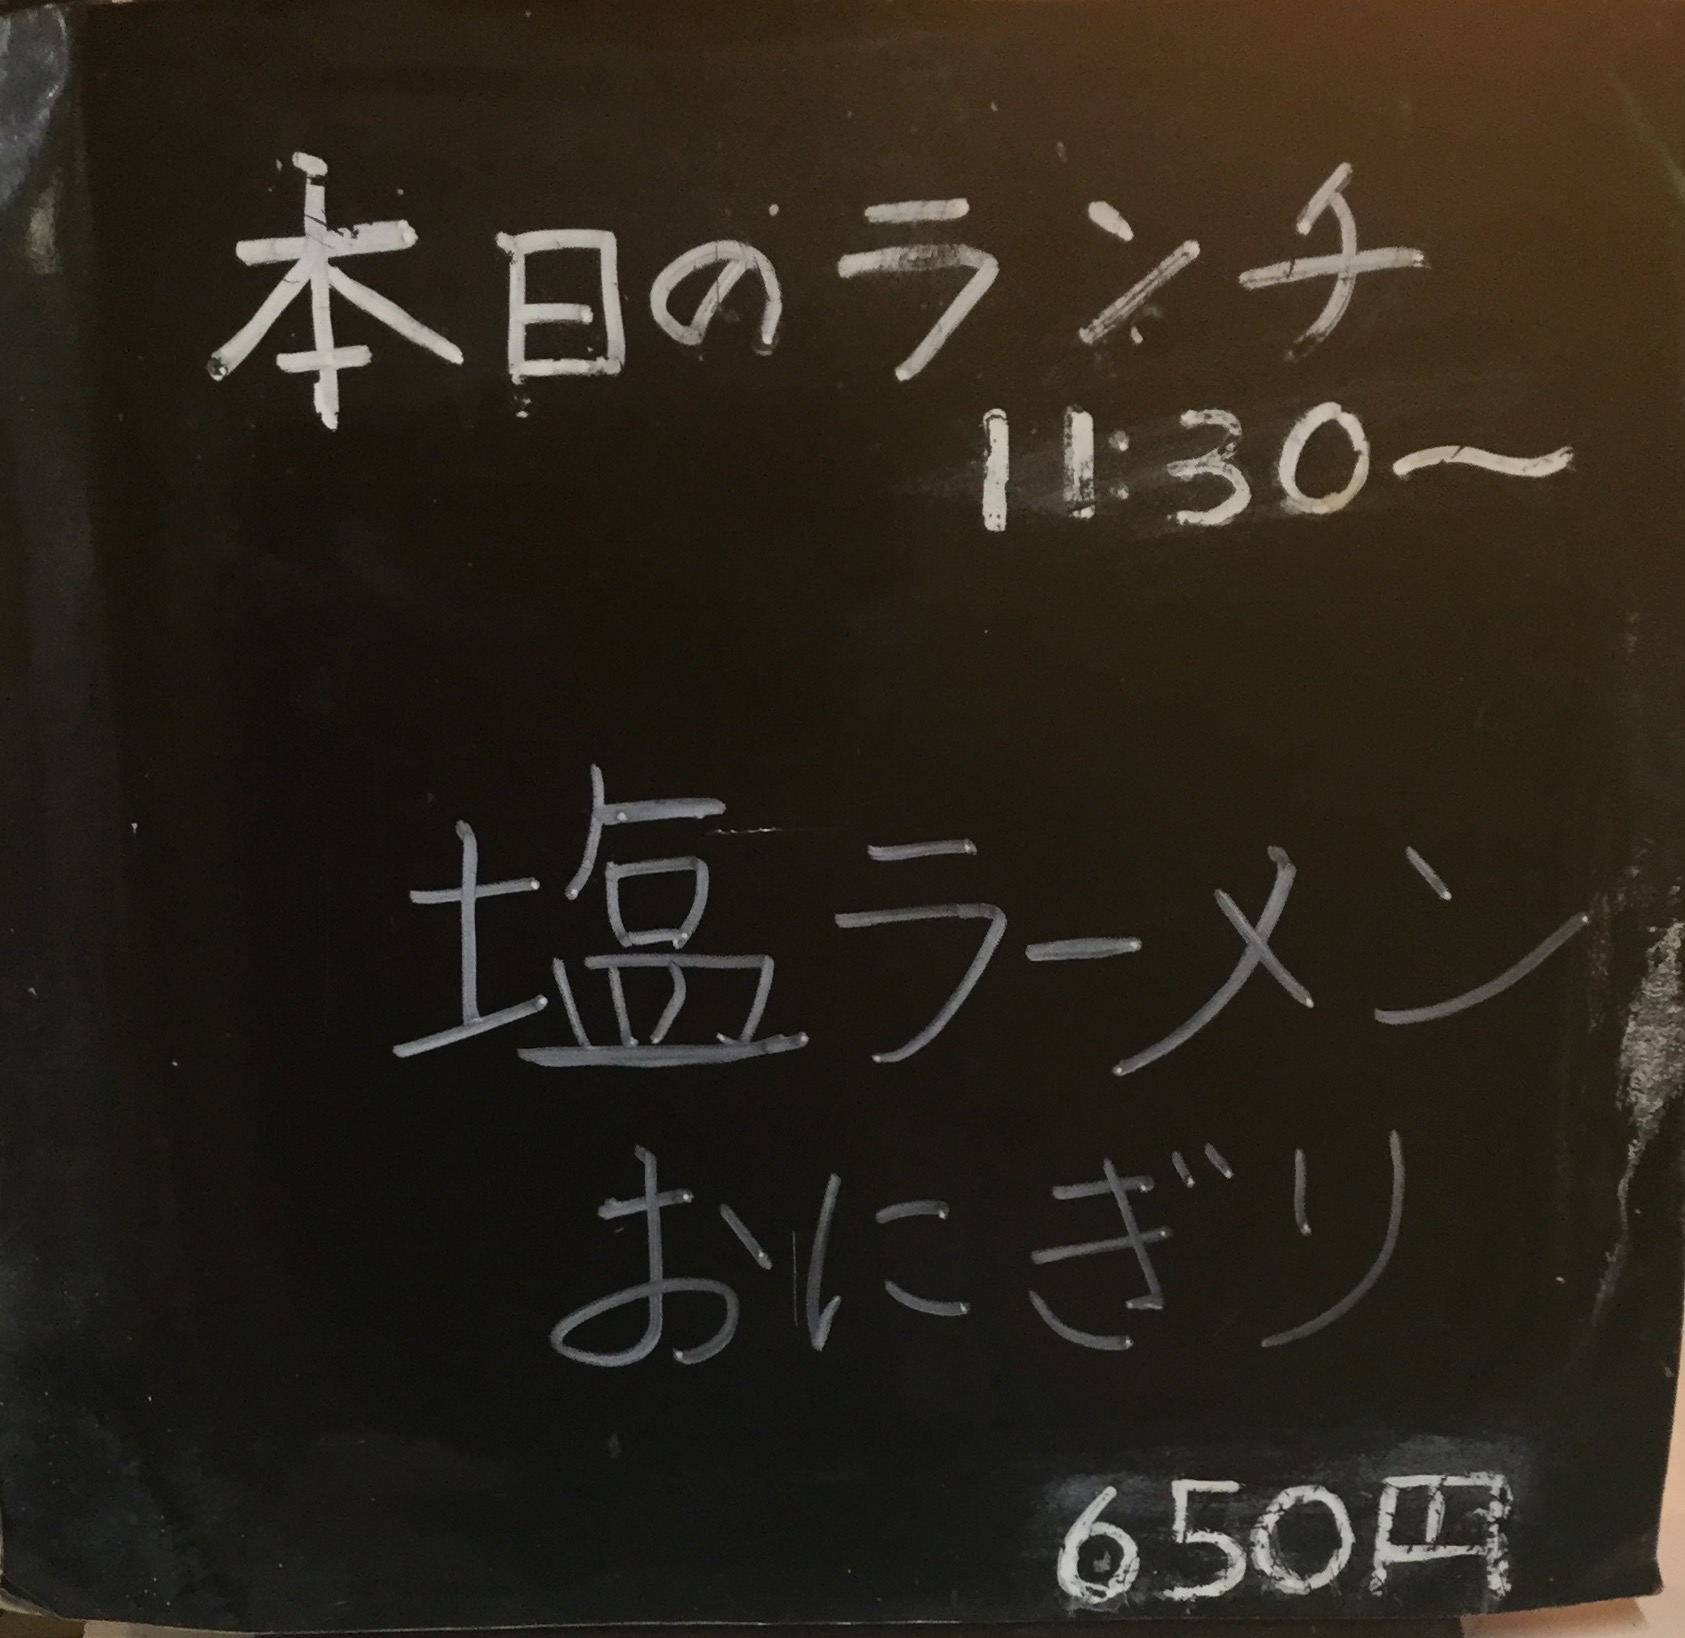 本日のランチ
11:30〜
塩ラーメン
おにぎり
650円